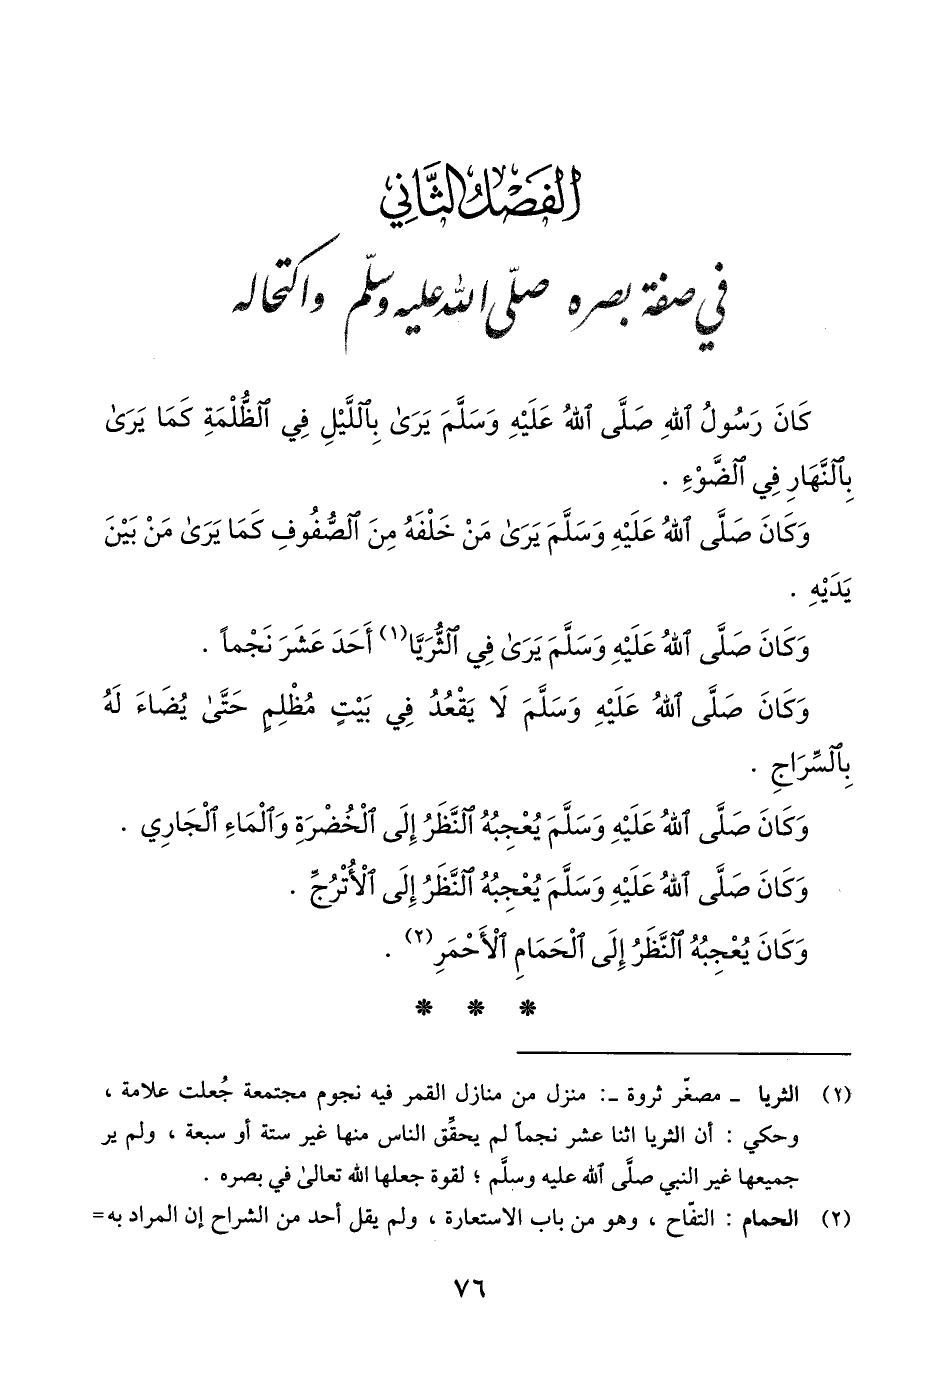 الفصل الثاني
في صفة بصره صلّى الله عليه وسلّم واكتحاله
كَانَ رَسُولُ ٱللهِ صَلَّى ٱللهُ عَلَيْهِ وَسَلَّمَ يَرَىٰ بِٱللَّيْلِ فِي ٱلظُّلْمَةِ كَمَا يَرَىٰ
بِٱلنَّهَارِ فِي ٱلضَّوْءِ .
وَكَانَ صَلَّى ٱللهُ عَلَيْهِ وَسَلَّمَ يَرَىٰ مَنْ خَلْفَهُ مِنَ ٱلصُّفُوفِ كَمَا يَرَىٰ مَنْ بَيْنَ
يَدَيْهِ .
وَكَانَ صَلَّى ٱللهُ عَلَيْهِ وَسَلَّمَ يَرَىٰ فِي ٱلثُّرَيَّا(١) أَحَدَ عَشَرَ نَجْماً .
وَكَانَ صَلَّى ٱللهُ عَلَيْهِ وَسَلَّمَ لَا يَقْعُدُ فِي بَيْتٍ مُظْلِمٍ حَتَّىٰ يُضَاءَ لَهُ
بِٱلسِّرَاجِ .
وَكَانَ صَلَّى ٱللهُ عَلَيْهِ وَسَلَّمَ يُعْجِبُهُ ٱلنَّظَرُ إِلَى ٱلْخُضْرَةِ وَٱلْمَاءِ ٱلْجَارِي .
وَكَانَ صَلَّى ٱللهُ عَلَيْهِ وَسَلَّمَ يُعْجِبُهُ ٱلنَّظَرُ إِلَى ٱلْأُتْرُجِّ .
وَكَانَ يُعْجِبُهُ ٱلنَّظَرُ إِلَى ٱلْحَمَامِ ٱلْأَحْمَرِ(٢) .
* * *
(٢) الثريا ـ مصغّر ثروة ـ: منزل من منازل القمر فيه نجوم مجتمعة جُعلت علامة ،
وحكي : أن الثريا اثنا عشر نجماً لم يحقِّق الناس منها غير ستة أو سبعة ، ولم ير
جميعها غير النبي صلَّى ٱلله عليه وسلَّم ؛ لقوة جعلها الله تعالىٰ في بصره .
(٢) الحمام : التفّاح ، وهو من باب الاستعارة ، ولم يقل أحد من الشراح إن المراد به=
٧٦